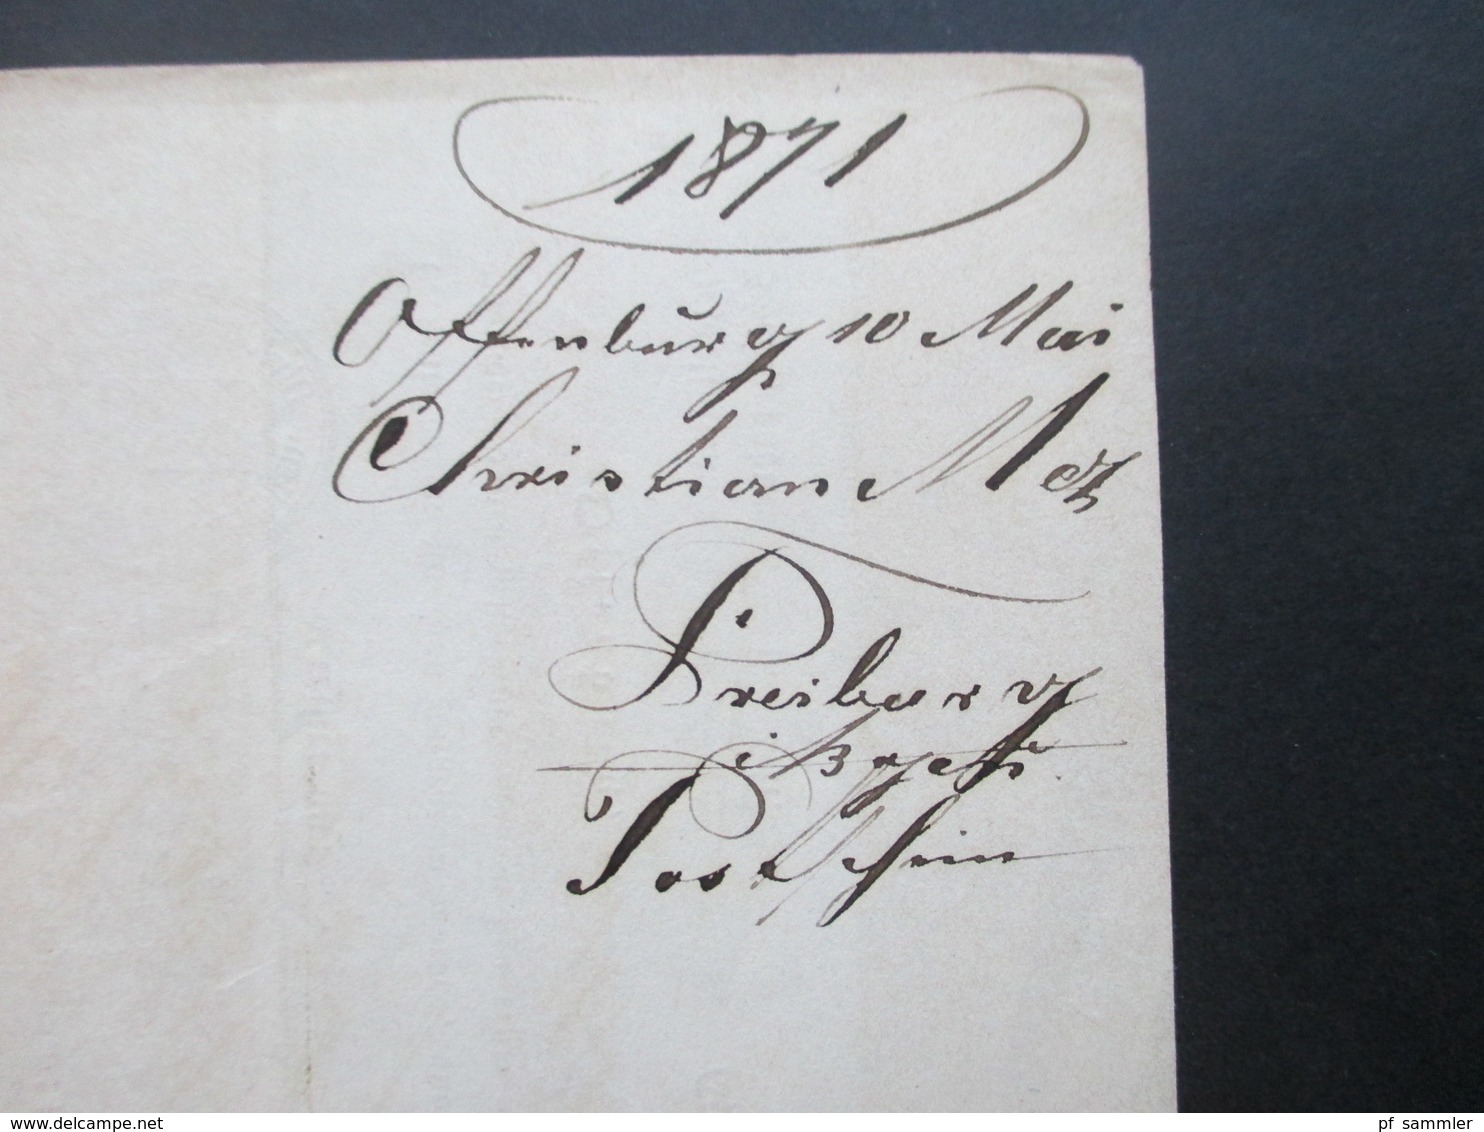 1871
Offenburg 10 Mai
Christian Metz
Freiburg
Postschein
www.delcampe.net
pf_sammler